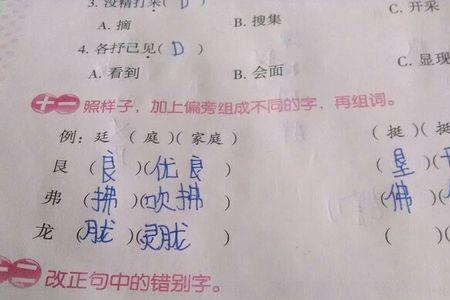 3. 没精打采( ) B. 搜集 C. 开采
A. 摘
4. 各抒己见( D )
A. 看到 B. 会面 C. 显现
十一 照样子，加上偏旁组成不同的字，再组词。
例：廷 ( 庭 )( 家庭 ) ( 挺 )( 挺
艮 ( 良 )( 优良 ) ( 垦 )(
弗 ( 拂 )( 吹拂 ) ( 佛 )(
龙 ( 胧 )( 灵胧 ) ( )(
十二 改正句中的错别字。